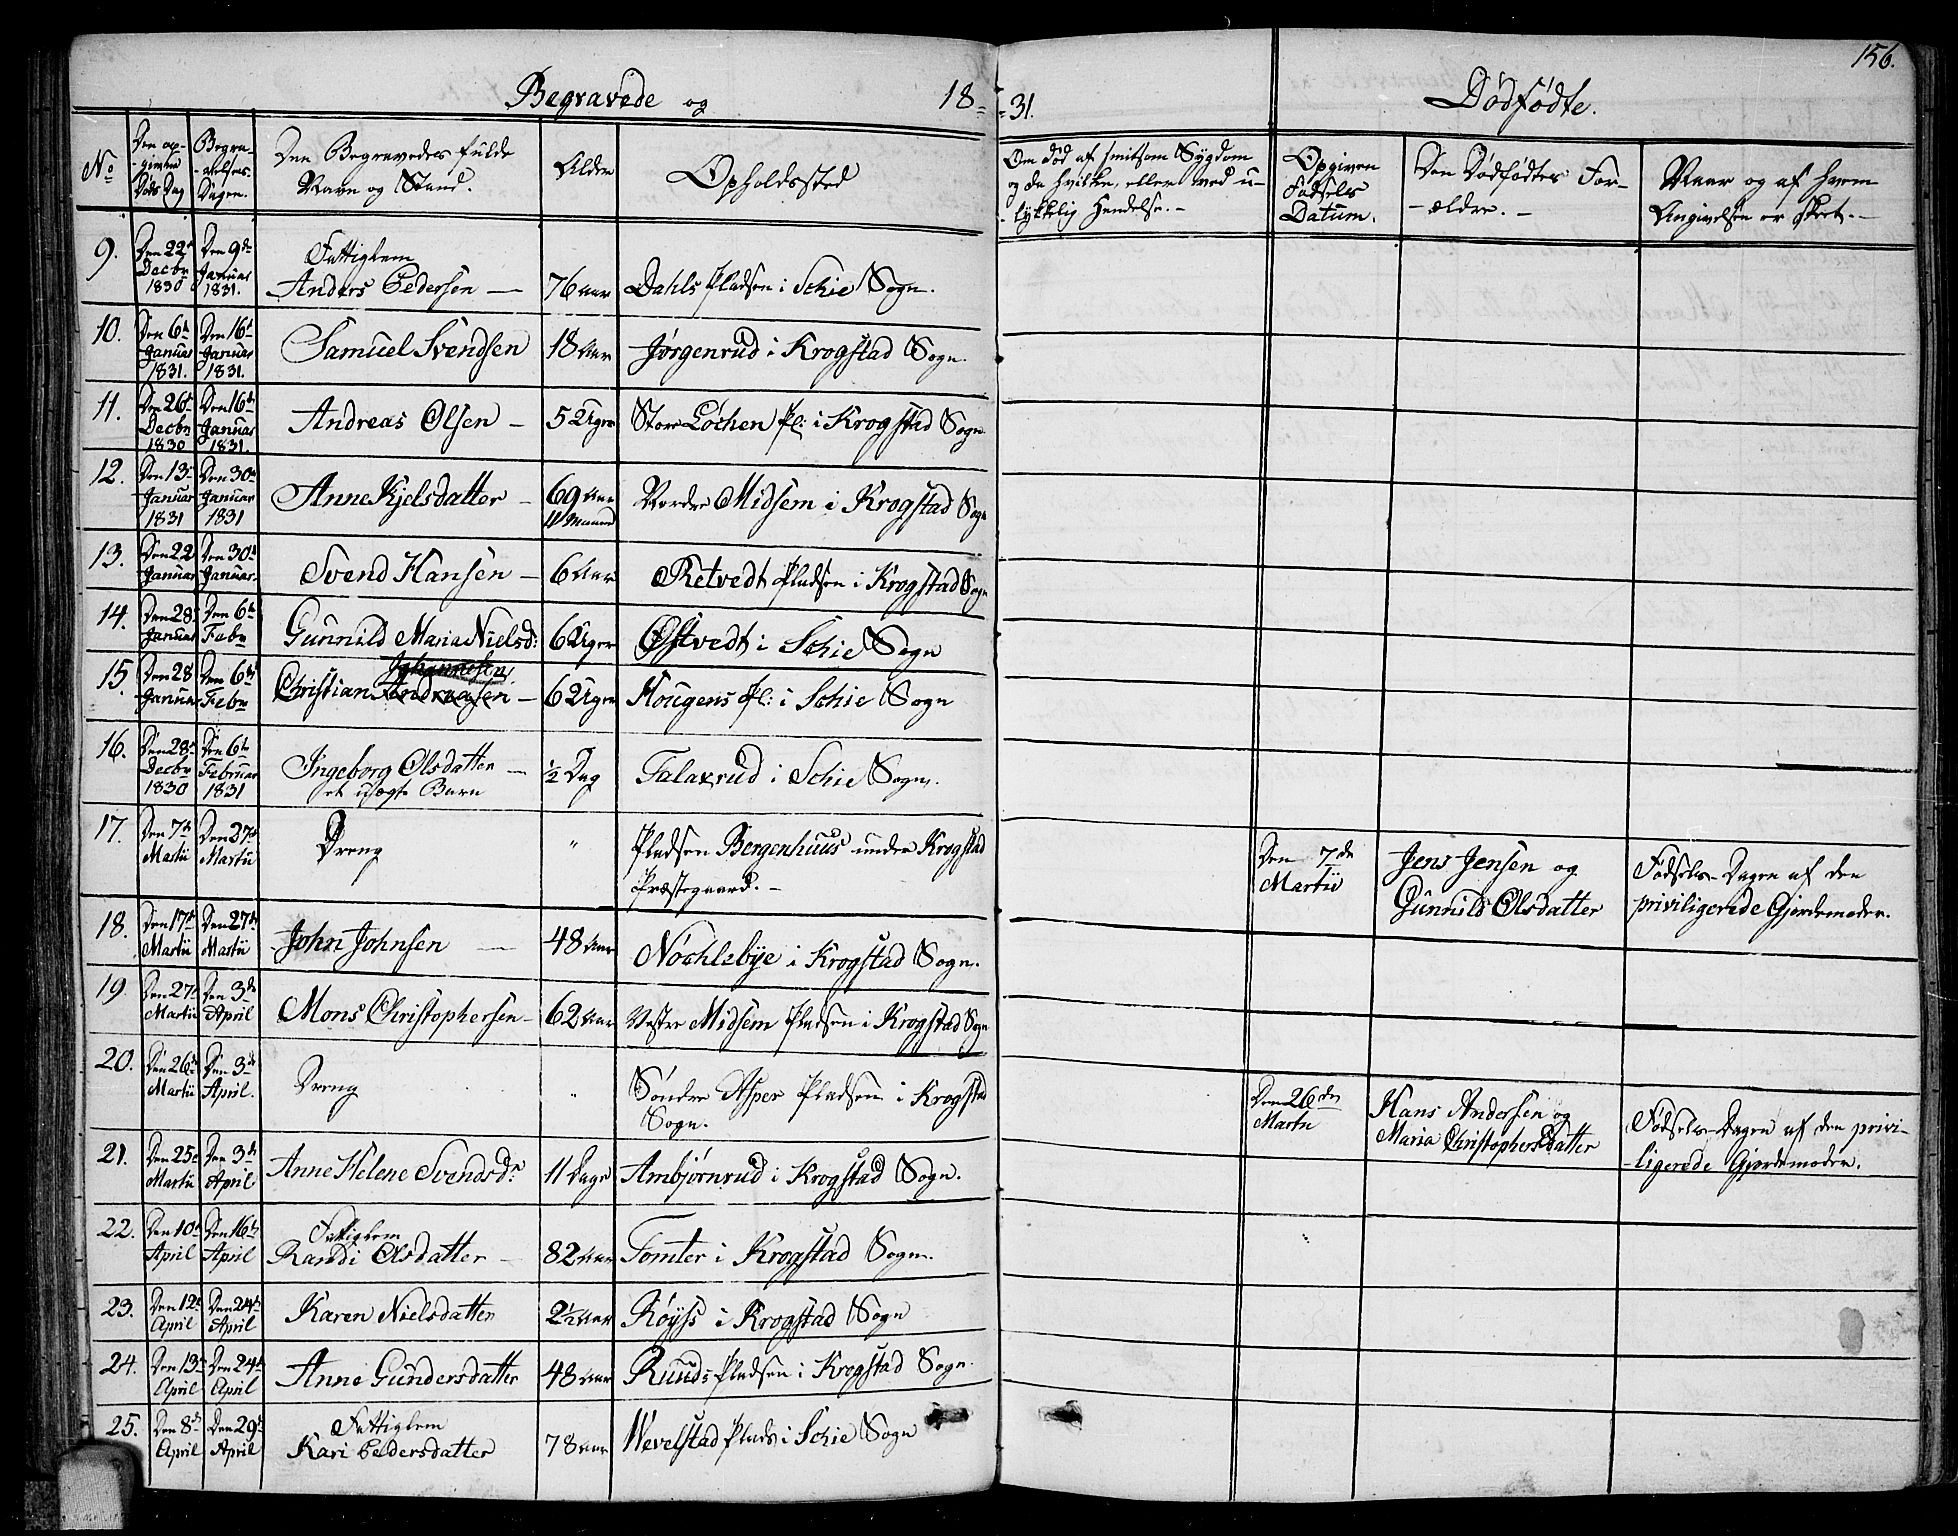 156.
Begravede og 18-
-31. Dødfødte.
No
Den op-
-givne
Døds Dag
Begra-
-velses-
Dagen.
Den Begravedes fulde
Navn og Stand.
Alder
Opholdssted
Om død af smitsom Sygdom
og da hvilken, eller ved u-
-lykkelig Hendelse.-
Opgiven
Fødsels
Datum.
Den Dødfødtes For-
-ældre.-
Naar og af hvem
Angivelsen er skeet.-
9. Den 22d Decbr 1830 Den 9de Januar 1831.
Fattiglem
Anders Pedersen — 76 Aar Dahls Pladsen i Schie Sogn.
10. Den 6te Januar 1831. Den 16d Januar 1831. Samuel Svendsen 18 Aar Jørgenrud i Krogstad Sogn.
11. Den 26d Decbr 1830 Den 16de Januar 1831. Andreas Olsen — 5 Uger Store Løchen Pl: i Krogstad Sogn
12. Den 13d Januar 1831 Den 30d Januar 1831 Anne Kjelsdatter — 69 Aar Nordre Midsem i Krogstad Sogn
11 Maaned
13. Den 22 Januar Den 30d Januar. Svend Hansen — 6 Aar Retvedt Pladsen i Krogstad Sogn
14. Den 28d Januar Den 6te Febr Gunnild Maria Nielsd: 6 Uger Østvedt i Schie Sogn
Johannesen
15. Den 28 Januar Den 6te Febr Christian Andreasen — 6 Uger Hougens Pl: i Schie Sogn
16. Den 28d Decbr 1830 Den 6te Februar 1831 Ingeborg Olsdatter — ½ Dag Falaxrud i Schie Sogn.
et uægte Barn
17. Den 7de Martii Den 27de Martii Dreng " Pladsen Bergenhuus under Krogstad
Præstegaard.-
Den 7de
Martii
Jens Jensen og
Gunnild Olsdatter
Fødsels-Dagen af den
priviligerede Gjordemoder.
18. Den 17d Martii Den 27de Martii John Johnsen — 48 Aar Nøchlebye i Krogstad Sogn.
19. Den 27d Martii Den 3de April Mons Christophersen — 62 Aar Vestre Midsem Pladsen i Krogstad Sogn
20. Den 26de Martii Den 3de April. Dreng " Søndre Asper Pladsen i Krogstad
Sogn.
Den 26de
Martii
Hans Andersen og
Maria Christophersdatter
Fødsels-Dagen af den privi-
-ligerede Gjordemoder.
21. Den 25d Martii Den 3de April Anne Helene Svendsdr 11 Dage Ambjørnrud i Krogstad Sogn.
22. Den 10d April Den 16de April
Fattiglem
Randi Olsdatter — 82 Aar Tomter i Krogstad Sogn.
23. Den 12d April Den 24d April Karen Nielsdatter 2½ Aar Røyss i Krogstad Sogn
24. Den 13d April Den 24d April Anne Gundersdatter 48 Aar Ruuds Pladsen i Krogstad Sogn.
25. Den 8de April Den 29d April
Fattiglem
Kari Pedersdatter 78 Aar Wevelstad Plads i Schie Sogn